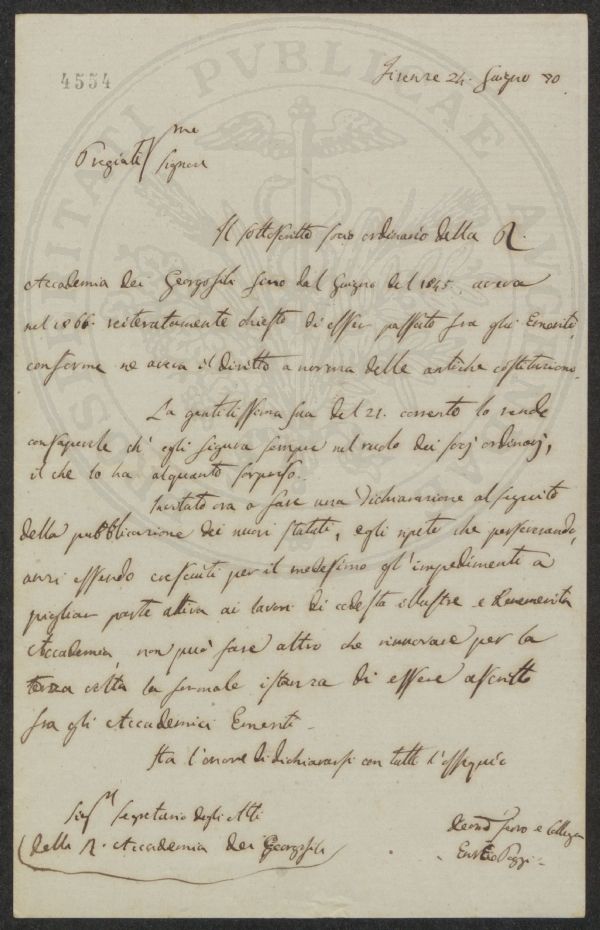 4554
Firenze 24. Giugno 70.
Pregiatmo Signore
Il sottoscritto socio ordinario della R.
Accademia dei Georgofili fino dal Giugno del 1845, aveva
nel 1866 reiteratamente chiesto di esser passato fra gli Emeriti,
conforme ne aveva il diritto a norma delle antiche costituzioni.
La gentilissima sua del 21. corrente lo rende
consapevole ch' egli figura sempre nel ruolo dei socj ordinarj,
il che lo ha alquanto sorpreso.
Invitato ora a fare una dichiarazione al seguito
della pubblicazione dei nuovi statuti, egli ripete che perseverando,
anzi essendo cresciuti per il medesimo gl' impedimenti a
pigliar parte attiva ai lavori di codesta illustre e benemerita
Accademia, non può fare altro che rinnovare per la
terza volta la formale istanza di essere ascritto
fra gli Accademici Emeriti.
Ha l'onore di dichiararsi con tutto l'ossequio
Sigr Segretario degli Atti
della R. Accademia dei Georgofili
Devmo Servo e Collega
Enrico Poggi
PVBLICAE